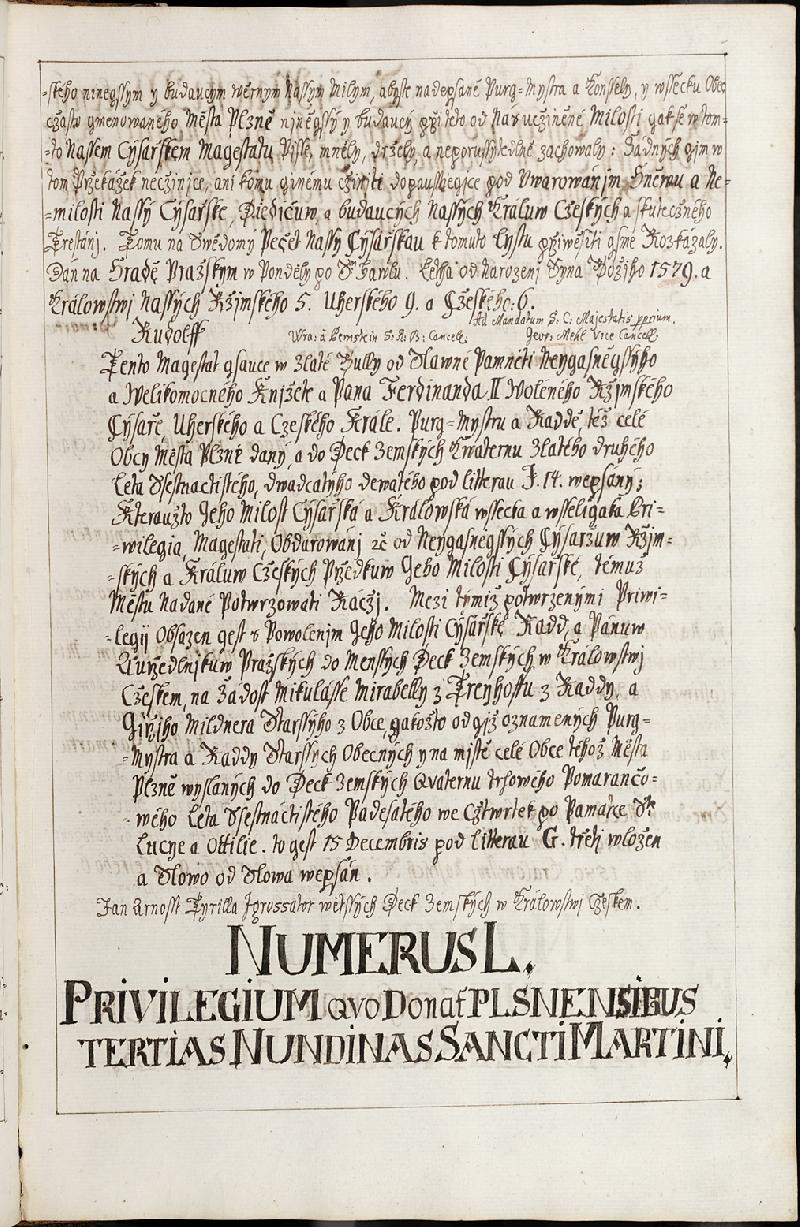 -ského ninegssym y budaucym wěrnym Nassym Milym, abyste nadepsané Purg-Mystra a Konssely, y wssecku Obec
cžasto gmenowaného Města Plzně niněgssý y budaucý při této od Nás učiněné Milosti gak se w tom-
-to Nassem Cýsařskem Magestatu Pisse, mněly, držely, a neporussytedlně zachowaly: Žadných gim w
tom Přzekážek nečinjce, ani komu ginému cžiniti dopausstegjce pod Uwarowánjm Hněwu a Ne-
-milosti Nassý Cýsařské, Diedicůw, a budaucých Nassých Králuw Cžeských a skutečžného
Trestánj. Tomu na Swědomj Pečet Nassý Cýsařskau k tomuto Lystu přiwěsyti gsme Rozkázaly.
Dán na Hradě Pražskym w Ponděly po S. Létha od Narozenj Syna Božjho 1579. a
Králowstwj Nassých Ržjmského 5. Uherského 9. a Cžeského: 6.
Ad Mandatum S: C: Majestatis
Rudolff Wra: à Bernstein S: R: B: Cancell: Geor: Mehl Vice Cancell
Tento Magestat gsauce w Zlaté Bully od Slawné Paměti Neygasněgssýho
a Welikomocného Knjžete a Pana Ferdinanda II Woleného Ržjmského
Cýsaře, Uherského a Czeského Krále. Purg-Mystru a Raddě, též celé
Obcy Města Plzně daný, a do Deck Zemských Kwaternu Zlatého druhého
Léta Ssestnáctistého, dwadcatýho dewatého pod litterau J. 14. wepsaný;
Kteraužto Geho Milost Cýsařská a Králowská wssecka a wsseligaka Pri-
-wilegia, Magestati, Obdarowánj zě od Neygasněgssých Cýsařzuw Ržjm-
-ských a Králuw Cžeských Przedkuw Geho Milosti Cýsařské, témuž
Městu Nadané Potwrzowati Ráczj. Mezi tymiž potwrzenými Priwi-
-legij Obsažen gest s Powolenjm Geho Milosti Cýsařské Radd, a Pánuw
Auržednjkuw Pražských do Mensých Deck Zemských w Králowstwj
Cžeskem, na Žádost Mikulásse Mirabelly z Treyhoffu z Raddy, a
Giržjho Mildnera Starssýho z Obce, gakožto od giž oznamených Purg-
-Mystra a Raddy Starssých Obecných y na mjstě celé Obce téhož Města
Plzně wyslaných do Deck Zemských Qvaternu trhowého Pomarančo-
-wého Léta Ssestnáctistého Padesatého we Cžtwrtek po Pamatce St
Lucye a Ottilie. to gest 15 Decembris pod Litterau G. třetj wložen
a Slowo od Slowa wepsán.
Jan Arnosst Tyrilla Jgrossator wětssých Deck Zemských w Králowstwj Cžeskem.
NUMERUS L.
PRIVILEGIUM QVO Donat PLSNENSIBUS
TERTIAS NUNDINAS SANCTI MARTINI.